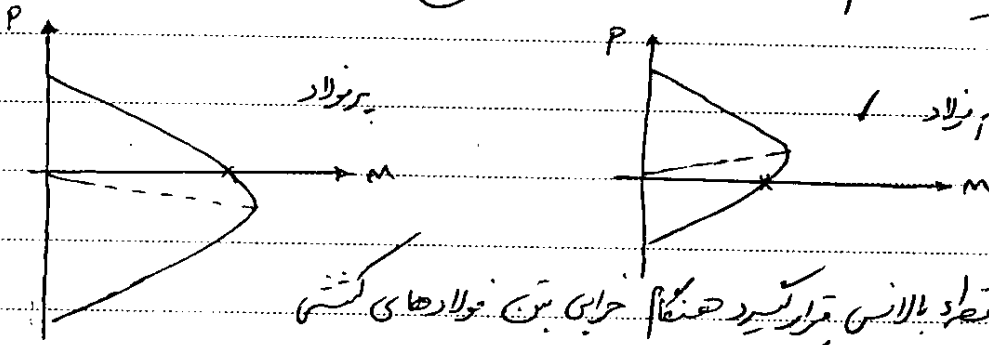 P
P
پرفولاد
کم فولاد
M
M
نقطه بالانس قرار گیرد هنگام خرابی بتن فولادهای کششی